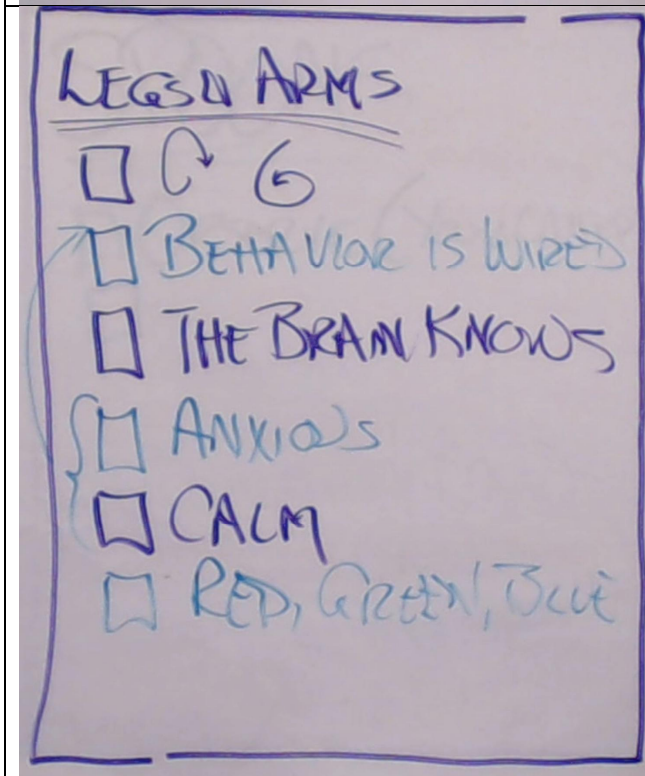 LEGS N ARMS
BEHAVIOR IS WIRED
THE BRAIN KNOWS
ANXIOUS
CALM
RED, GREEN, BLUE